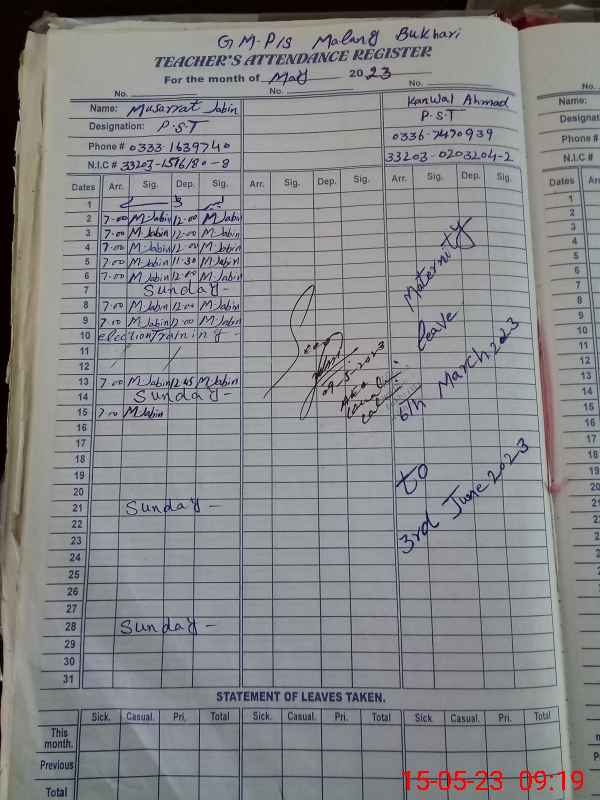 G.M.P/S Malang Bukhari
TEACHER'S ATTENDANCE REGISTER
For the month of May 2023
No. No. No.
Name: Musarrat Jabin Kanwal Ahmad Name:
Designation: P.S.T P.S.T
Phone # 0333-1639740 0336-7470939 Phone #
N.I.C # 33203-0203204-2 N.I.C #
Dates Arr. Sig. Dep. Sig. Arr. Sig. Dep. Sig. Arr. Sig. Dep. Sig. Dates Arr.
1 1
2 7-00 M Jabin 12-00 M Jabin 2
3 7-00 M Jabin 12-00 M Jabin 3
4 7-00 M Jabin 12-00 M Jabin 4
5 7-00 M Jabin 11-30 M Jabin 5
6 7-00 M Jabin 12-00 M Jabin 6
7 Sunday - 7
8 7-00 M Jabin 12-00 M Jabin 8
9 7-10 M Jabin 12-00 M Jabin 9
10 election Training - 10
11 11
12 12
13 7-00 M Jabin 12-45 M Jabin 13
14 Sunday - 14
15 7-00 M Jabin 15
16 16
17 17
18 18
19 19
20 20
21 Sunday - 21
22 22
23 23
24 24
25 25
26 26
27 27
28 Sunday - 28
29 29
30 30
31 31
09-5-2023
AEO
Maternity
leave
6th March 2023
to
3rd June 2023
STATEMENT OF LEAVES TAKEN.
Sick. Casual. Pri. Total Sick. Casual. Pri. Total Sick. Casual. Pri. Total
This
month.
Previous
Total
15-05-23 09:19